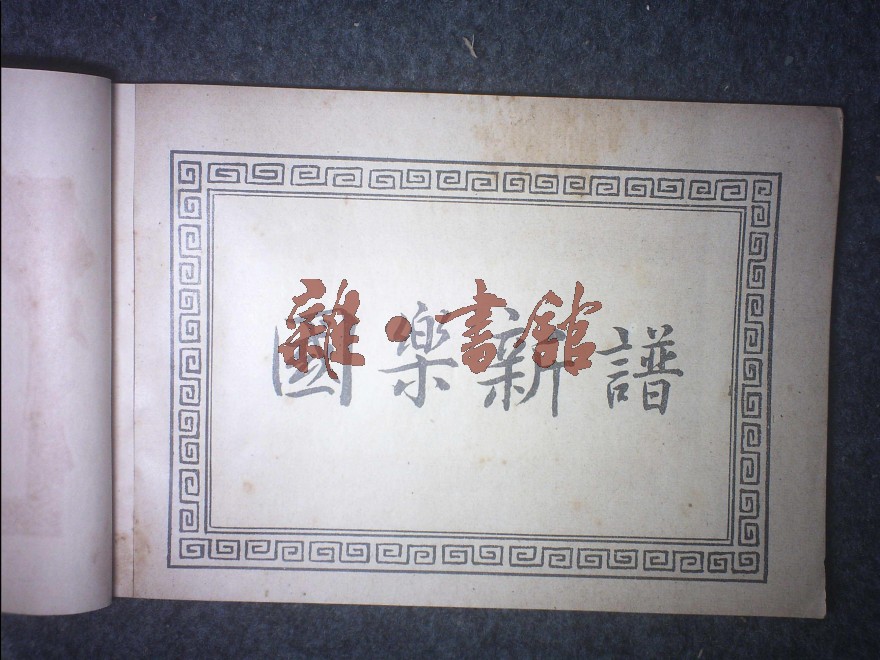 國樂新譜
雜·書館